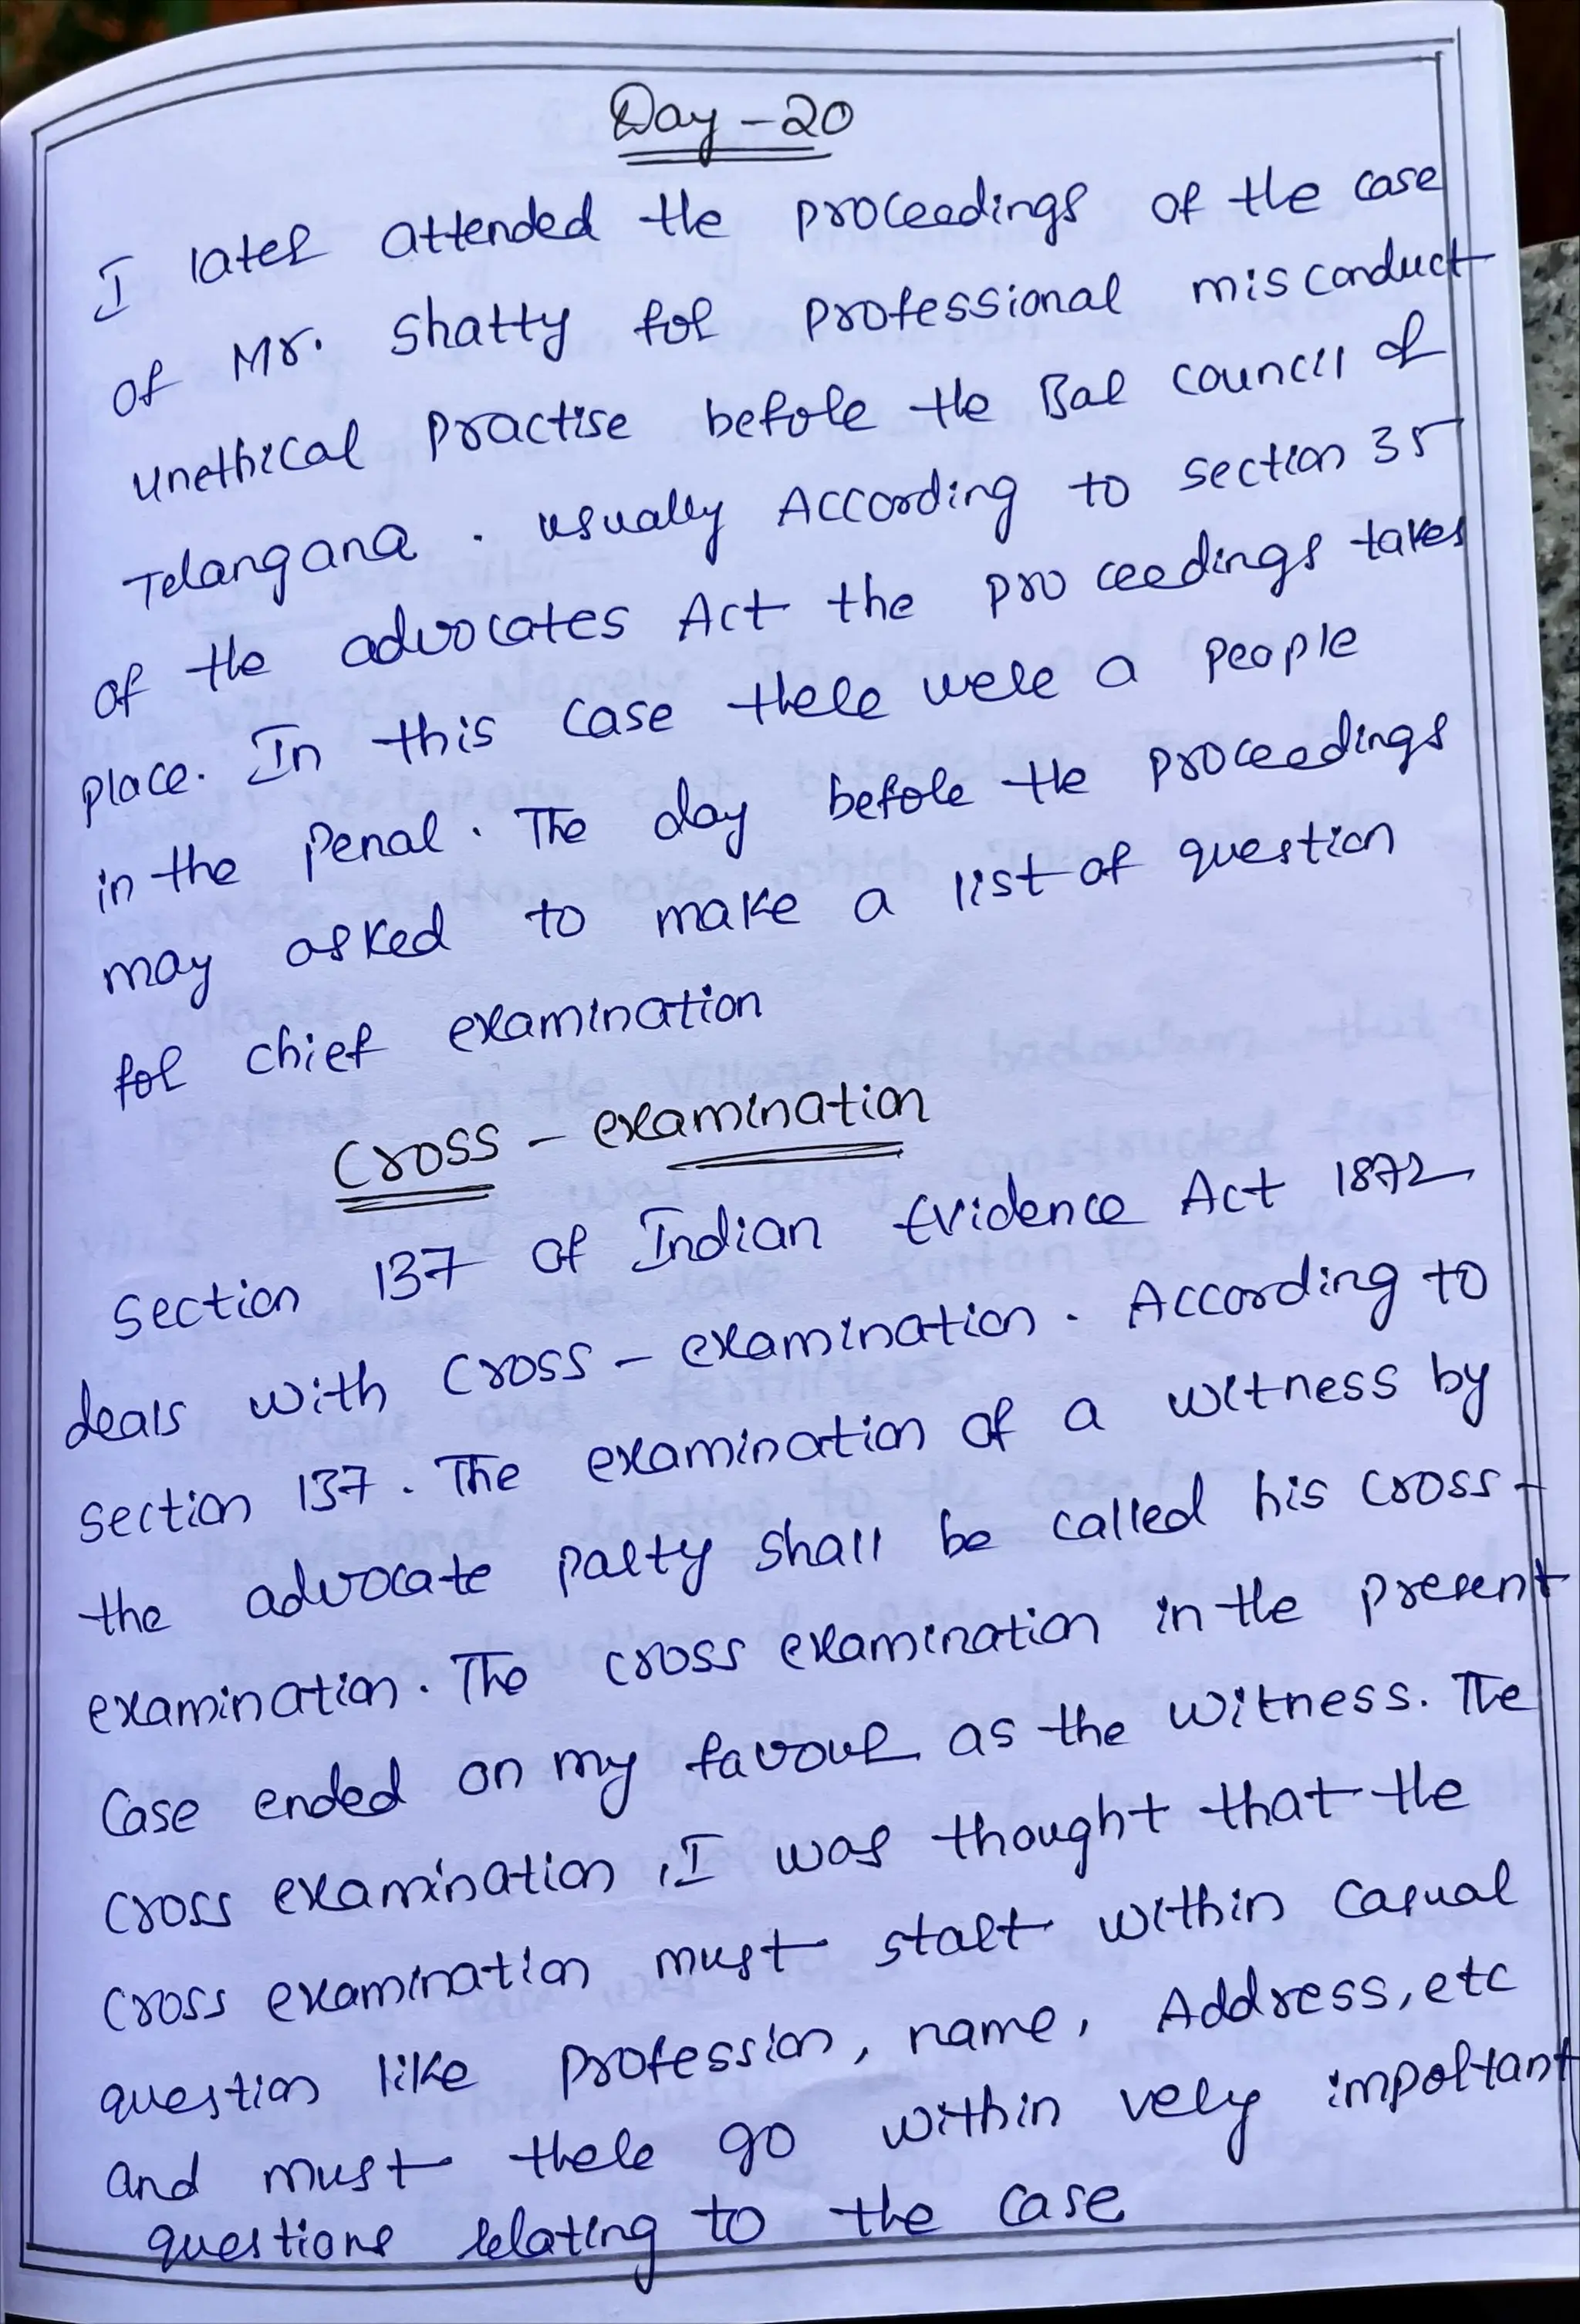 Day - 20
I later attended the proceedings of the case
of Mr. Shatty for professional misconduct
unethical practise before the Bar council of
Telangana . usually According to section 35
of the advocates Act the proceedings takes
place. In this case there were a people
in the penal . The day before the proceedings
may asked to make a list of question
for chief examination
Cross - examination
section 137 of Indian Evidence Act 1872
deals with cross - examination . According to
section 137 . The examination of a witness by
the advocate party shall be called his cross -
examination . The cross examination in the present
Case ended on my favour as the witness. The
cross examination , I was thought that the
cross examination must start within casual
question like profession, name, Address, etc
and must there go within very important
questions relating to the case